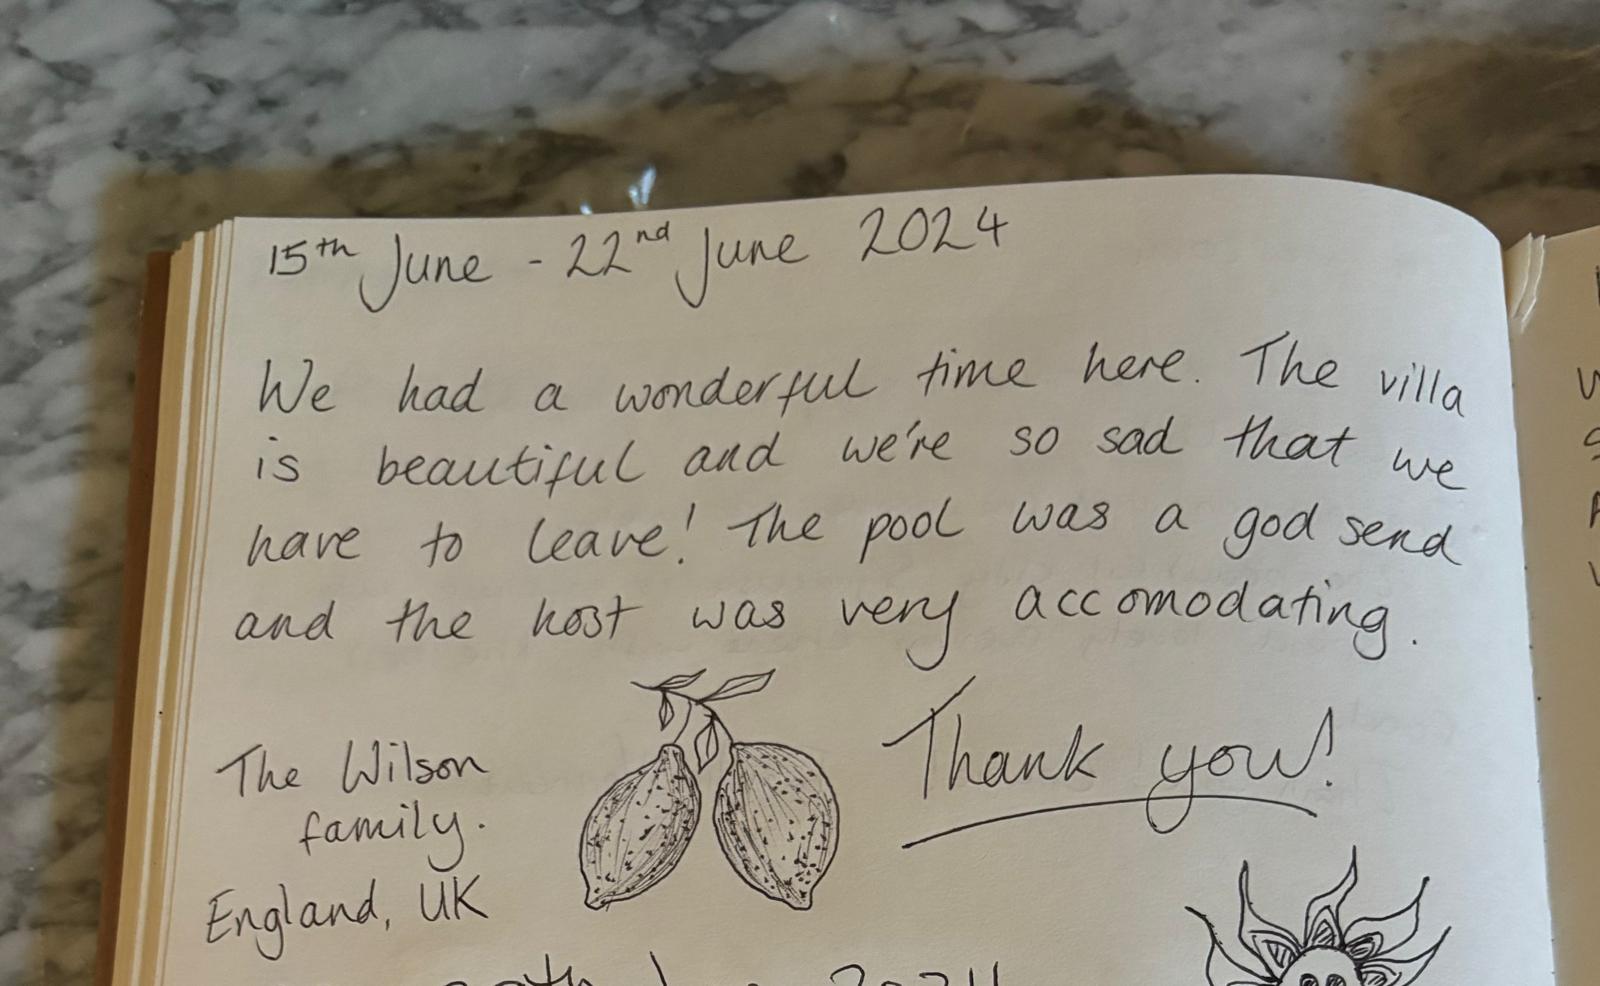 15th June - 22nd June 2024
We had a wonderful time here. The villa
is beautiful and we're so sad that we
have to leave! The pool was a god send
and the host was very accomodating.
The Wilson
family.
England, UK
Thank you!
2024